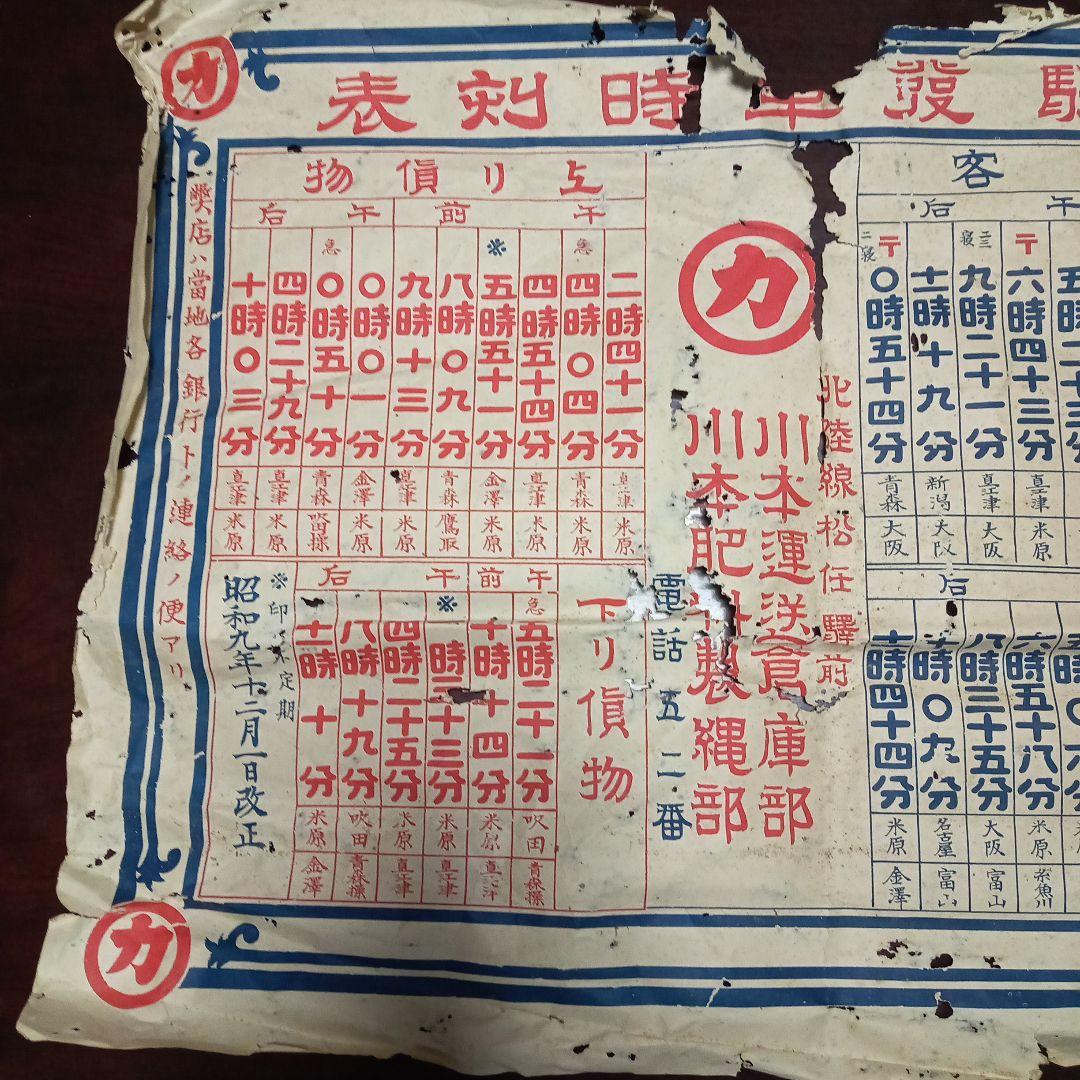 驛發車時刻表
客
午后
〒 六時四十三分 直江津 米原
二三寝 九時二十一分 直江津 大阪
十一時十九分 新潟 大阪
二寝 〒 〇時五十四分 青森 大阪
后
六時五十八分 米原 糸魚川
八時三十五分 大阪 富山
十時〇九分 名古屋 富山
十一時四十四分 米原 金澤
北陸線松任驛前
カ
川本運送倉庫部
川本肥料製縄部
電話五二番
上リ貨物
午前
二時四十一分 直江津 米原
急 四時〇四分 青森 米原
四時五十四分 直江津 米原
※ 五時五十一分 金澤 米原
八時〇九分 青森 鷹取
九時十三分 直江津 米原
午后
〇時〇一分 金澤 米原
急 〇時五十分 青森 吹田操
四時二十九分 直江津 米原
十時〇三分 直江津 米原
下リ貨物
午前
急 五時二十一分 吹田 青森操
十時十四分 米原 直江津
午后
※ 二時三十三分 米原 直江津
四時二十五分 米原 直江津
八時十九分 吹田 青森操
十一時十分 米原 金澤
※印不定期
昭和九年十二月一日改正
弊店ハ當地各銀行トノ連絡ノ便アリ
カ
カ